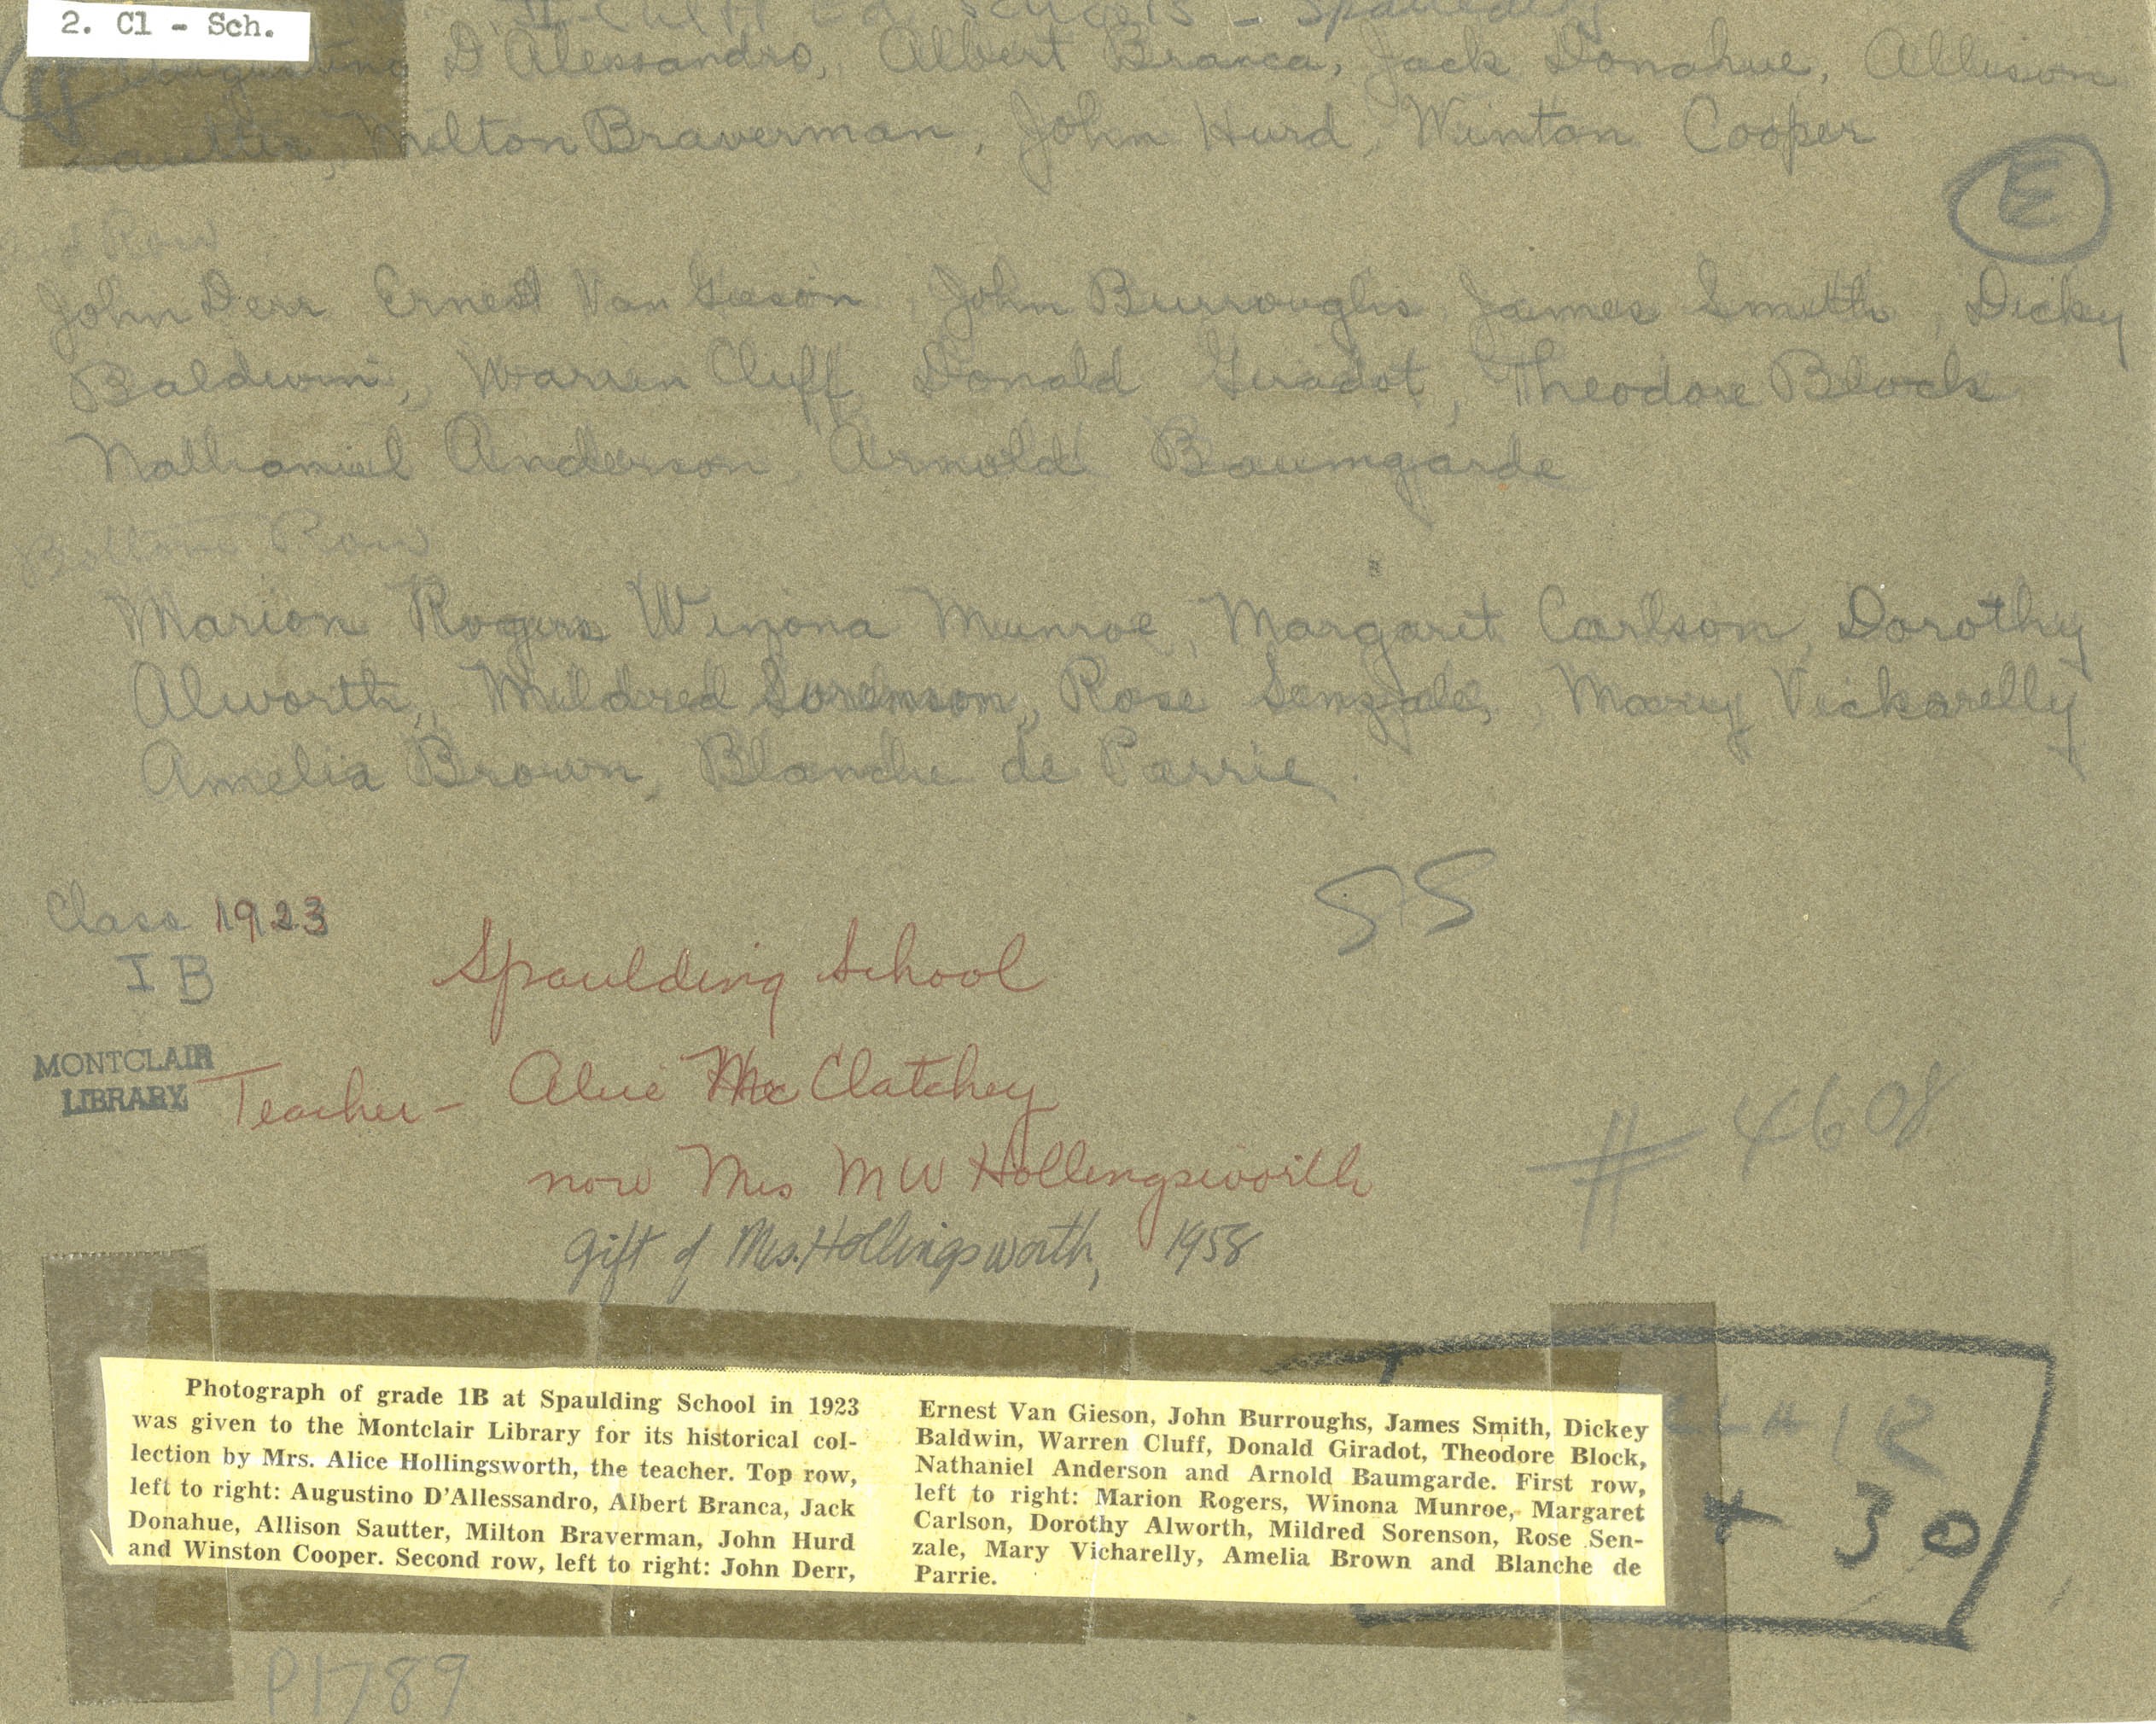 2. Cl - Sch.
Schools - Spaulding
D'Alessandro, Albert Branca, Jack Donahue, Allison
Sautter, Milton Braverman, John Hurd, Winton Cooper
E
Row
John Derr Ernest Van Gieson, John Burroughs, James Smith, Dicky
Baldwin, Warren Cluff, Donald Giradot, Theodore Block
Nathaniel Anderson, Arnold Baumgarde
Bottom Row
Marion Rogers Winona Munroe, Margaret Carlson, Dorothy
Alworth, Mildred Sorenson, Rose Senzale, Mary Vickarelly
Amelia Brown, Blanche de Parrie
SS
Class 1923
I B
Spaulding School
MONTCLAIR
LIBRARY
Teacher - Alice McClatchey
now Mrs M W Hollingsworth
# 4608
Gift of Mrs. Hollingsworth, 1958
Photograph of grade 1B at Spaulding School in 1923
was given to the Montclair Library for its historical col-
lection by Mrs. Alice Hollingsworth, the teacher. Top row,
left to right: Augustino D'Allessandro, Albert Branca, Jack
Donahue, Allison Sautter, Milton Braverman, John Hurd
and Winston Cooper. Second row, left to right: John Derr,
Ernest Van Gieson, John Burroughs, James Smith, Dickey
Baldwin, Warren Cluff, Donald Giradot, Theodore Block,
Nathaniel Anderson and Arnold Baumgarde. First row,
left to right: Marion Rogers, Winona Munroe, Margaret
Carlson, Dorothy Alworth, Mildred Sorenson, Rose Sen-
zale, Mary Vicharelly, Amelia Brown and Blanche de
Parrie.
30
P1789